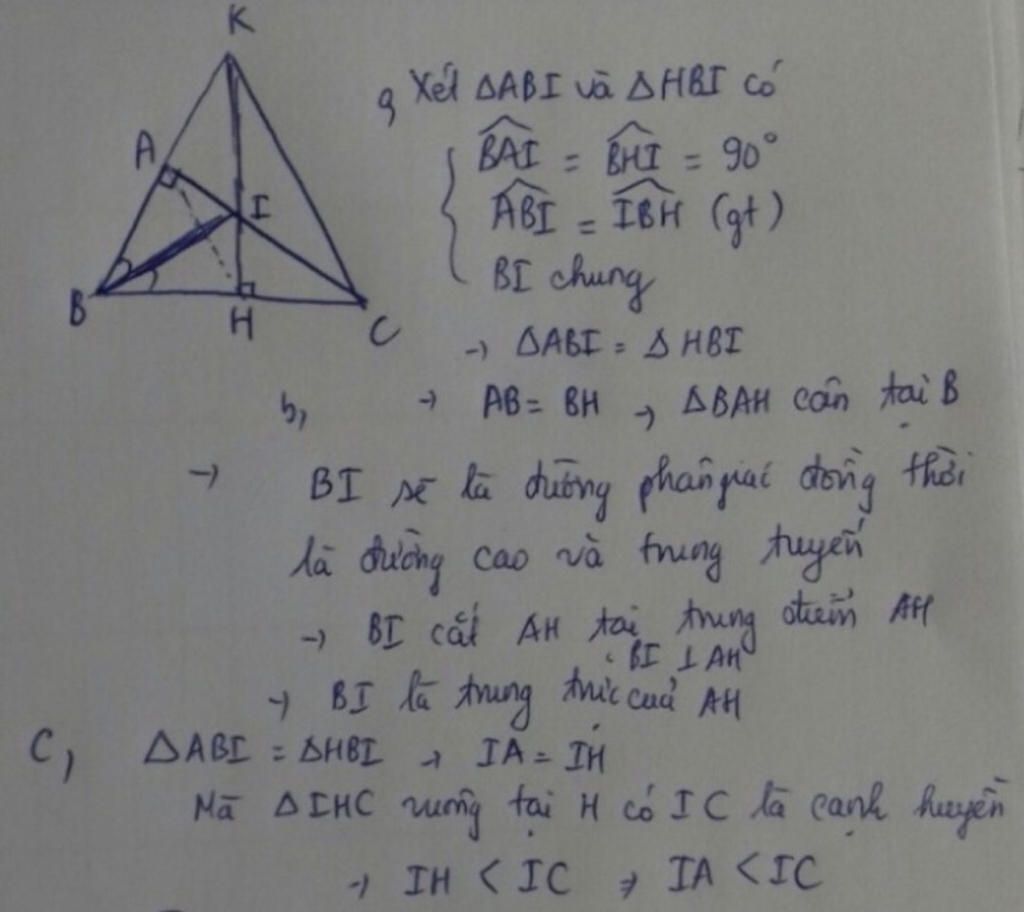 K
A
I
B
H
C
a, Xét ΔABI và ΔHBI có
BAI = BHI = 90°
ABI = IBH (gt)
BI chung
→ ΔABI = ΔHBI
b, → AB = BH → ΔBAH cân tại B
→ BI sẽ là đường phân giác đồng thời
là đường cao và trung tuyến
→ BI cắt AH tại trung điểm AH
BI ⊥ AH
→ BI là trung trực của AH
C, ΔABI = ΔHBI → IA = IH
Mà ΔIHC vuông tại H có IC là cạnh huyền
→ IH < IC → IA < IC